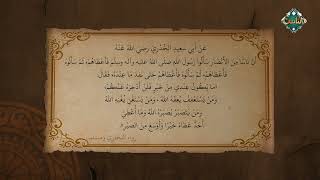 عن أبي سعيد الخدري رضي الله عنه
أن ناسا من الأنصار سألوا رسول الله صلى الله عليه وآله وسلم فأعطاهم، ثم سألوه
فأعطاهم، ثم سألوه فأعطاهم حتى نفد ما عنده، فقال
ما يكون عندي من خير فلن أدخره عنكم
ومن يستعفف يعفه الله ، ومن يستغن يغنه الله
ومن يتصبر يصبره الله وما أعطي
أحد عطاء خيرا وأوسع من الصبر
رواه البخاري
الناس